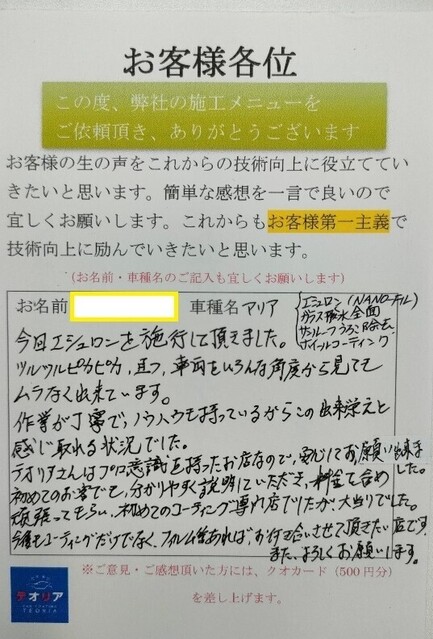 お客様各位
この度、弊社の施工メニューを
ご依頼頂き、ありがとうございます
お客様の生の声をこれからの技術向上に役立ててい
きたいと思います。簡単な感想を一言で良いので
宜しくお願いします。これからもお客様第一主義で
技術向上に励んでいきたいと思います。
(お名前・車種名のご記入も宜しくお願いします)
お名前 車種名 アリア
エシュロン(NANO-FIL)
ガラス撥水全面
サンルーフうろこ除去、
ホイールコーティング
今回エシュロンを施行して頂きました。
ツルツルピカピカ、且つ、車両をいろんな角度から見ても
ムラなく出来ています。
作業が丁寧で、ノウハウを持っているからこの出来栄えと
感じ取れる状況でした。
テオリアさんはプロ意識を持ったお店なので、安心してお願い出来ました。
初めてのお客でも、分かりやすく説明していただき、料金も含め
頑張ってもらい、初めてのコーティング専門店でしたが、大当りでした。
今後もコーティングだけでなく、フィルム等あれば、お付き合いさせて頂きたい店です。
また、よろしくお願いします。
※ご意見・ご感想頂いた方には、クオカード(500円分)
を差し上げます。
テオリア
TEORIA